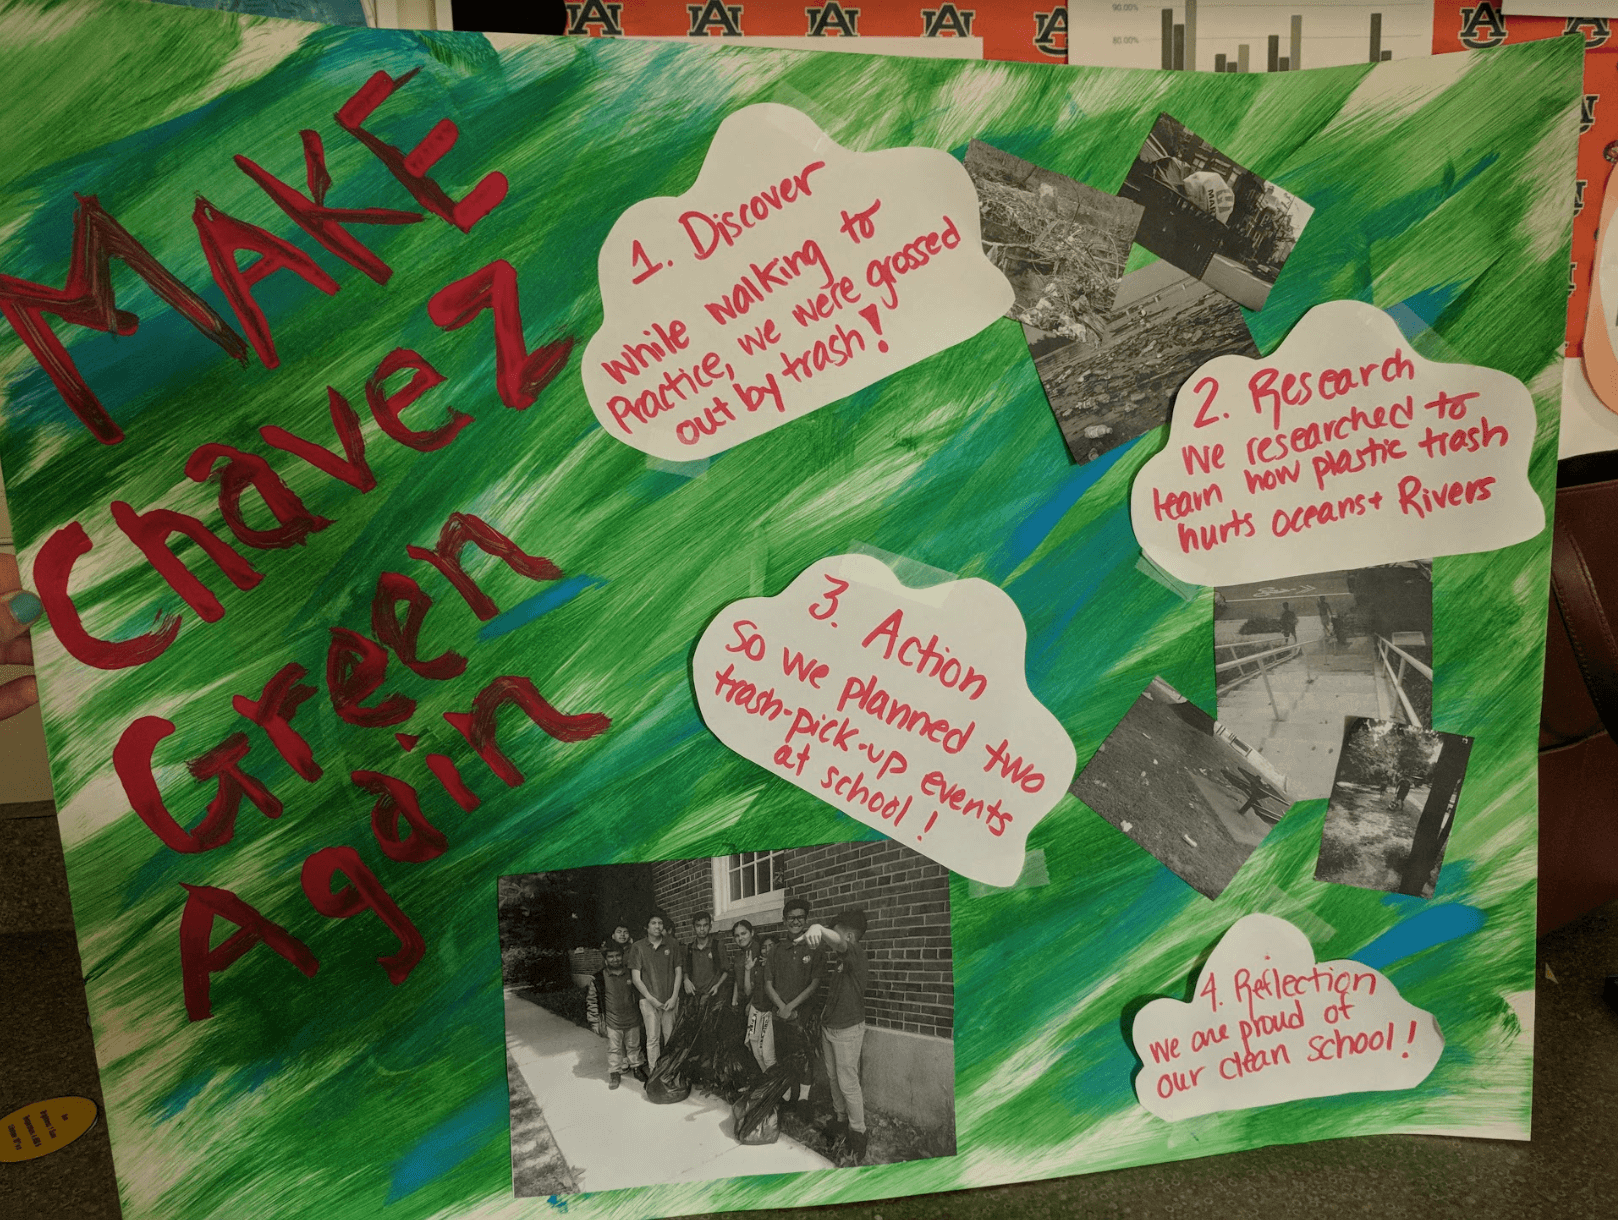 MAKE
Chavez
Green
Again
1. Discover
While walking to
Practice, we were grossed
out by trash!
2. Research
We researched to
learn how plastic trash
hurts oceans + Rivers
3. Action
So we planned two
trash-pick-up events
at school!
4. Reflection
We are proud of
our clean school!
90.00%
80.00%